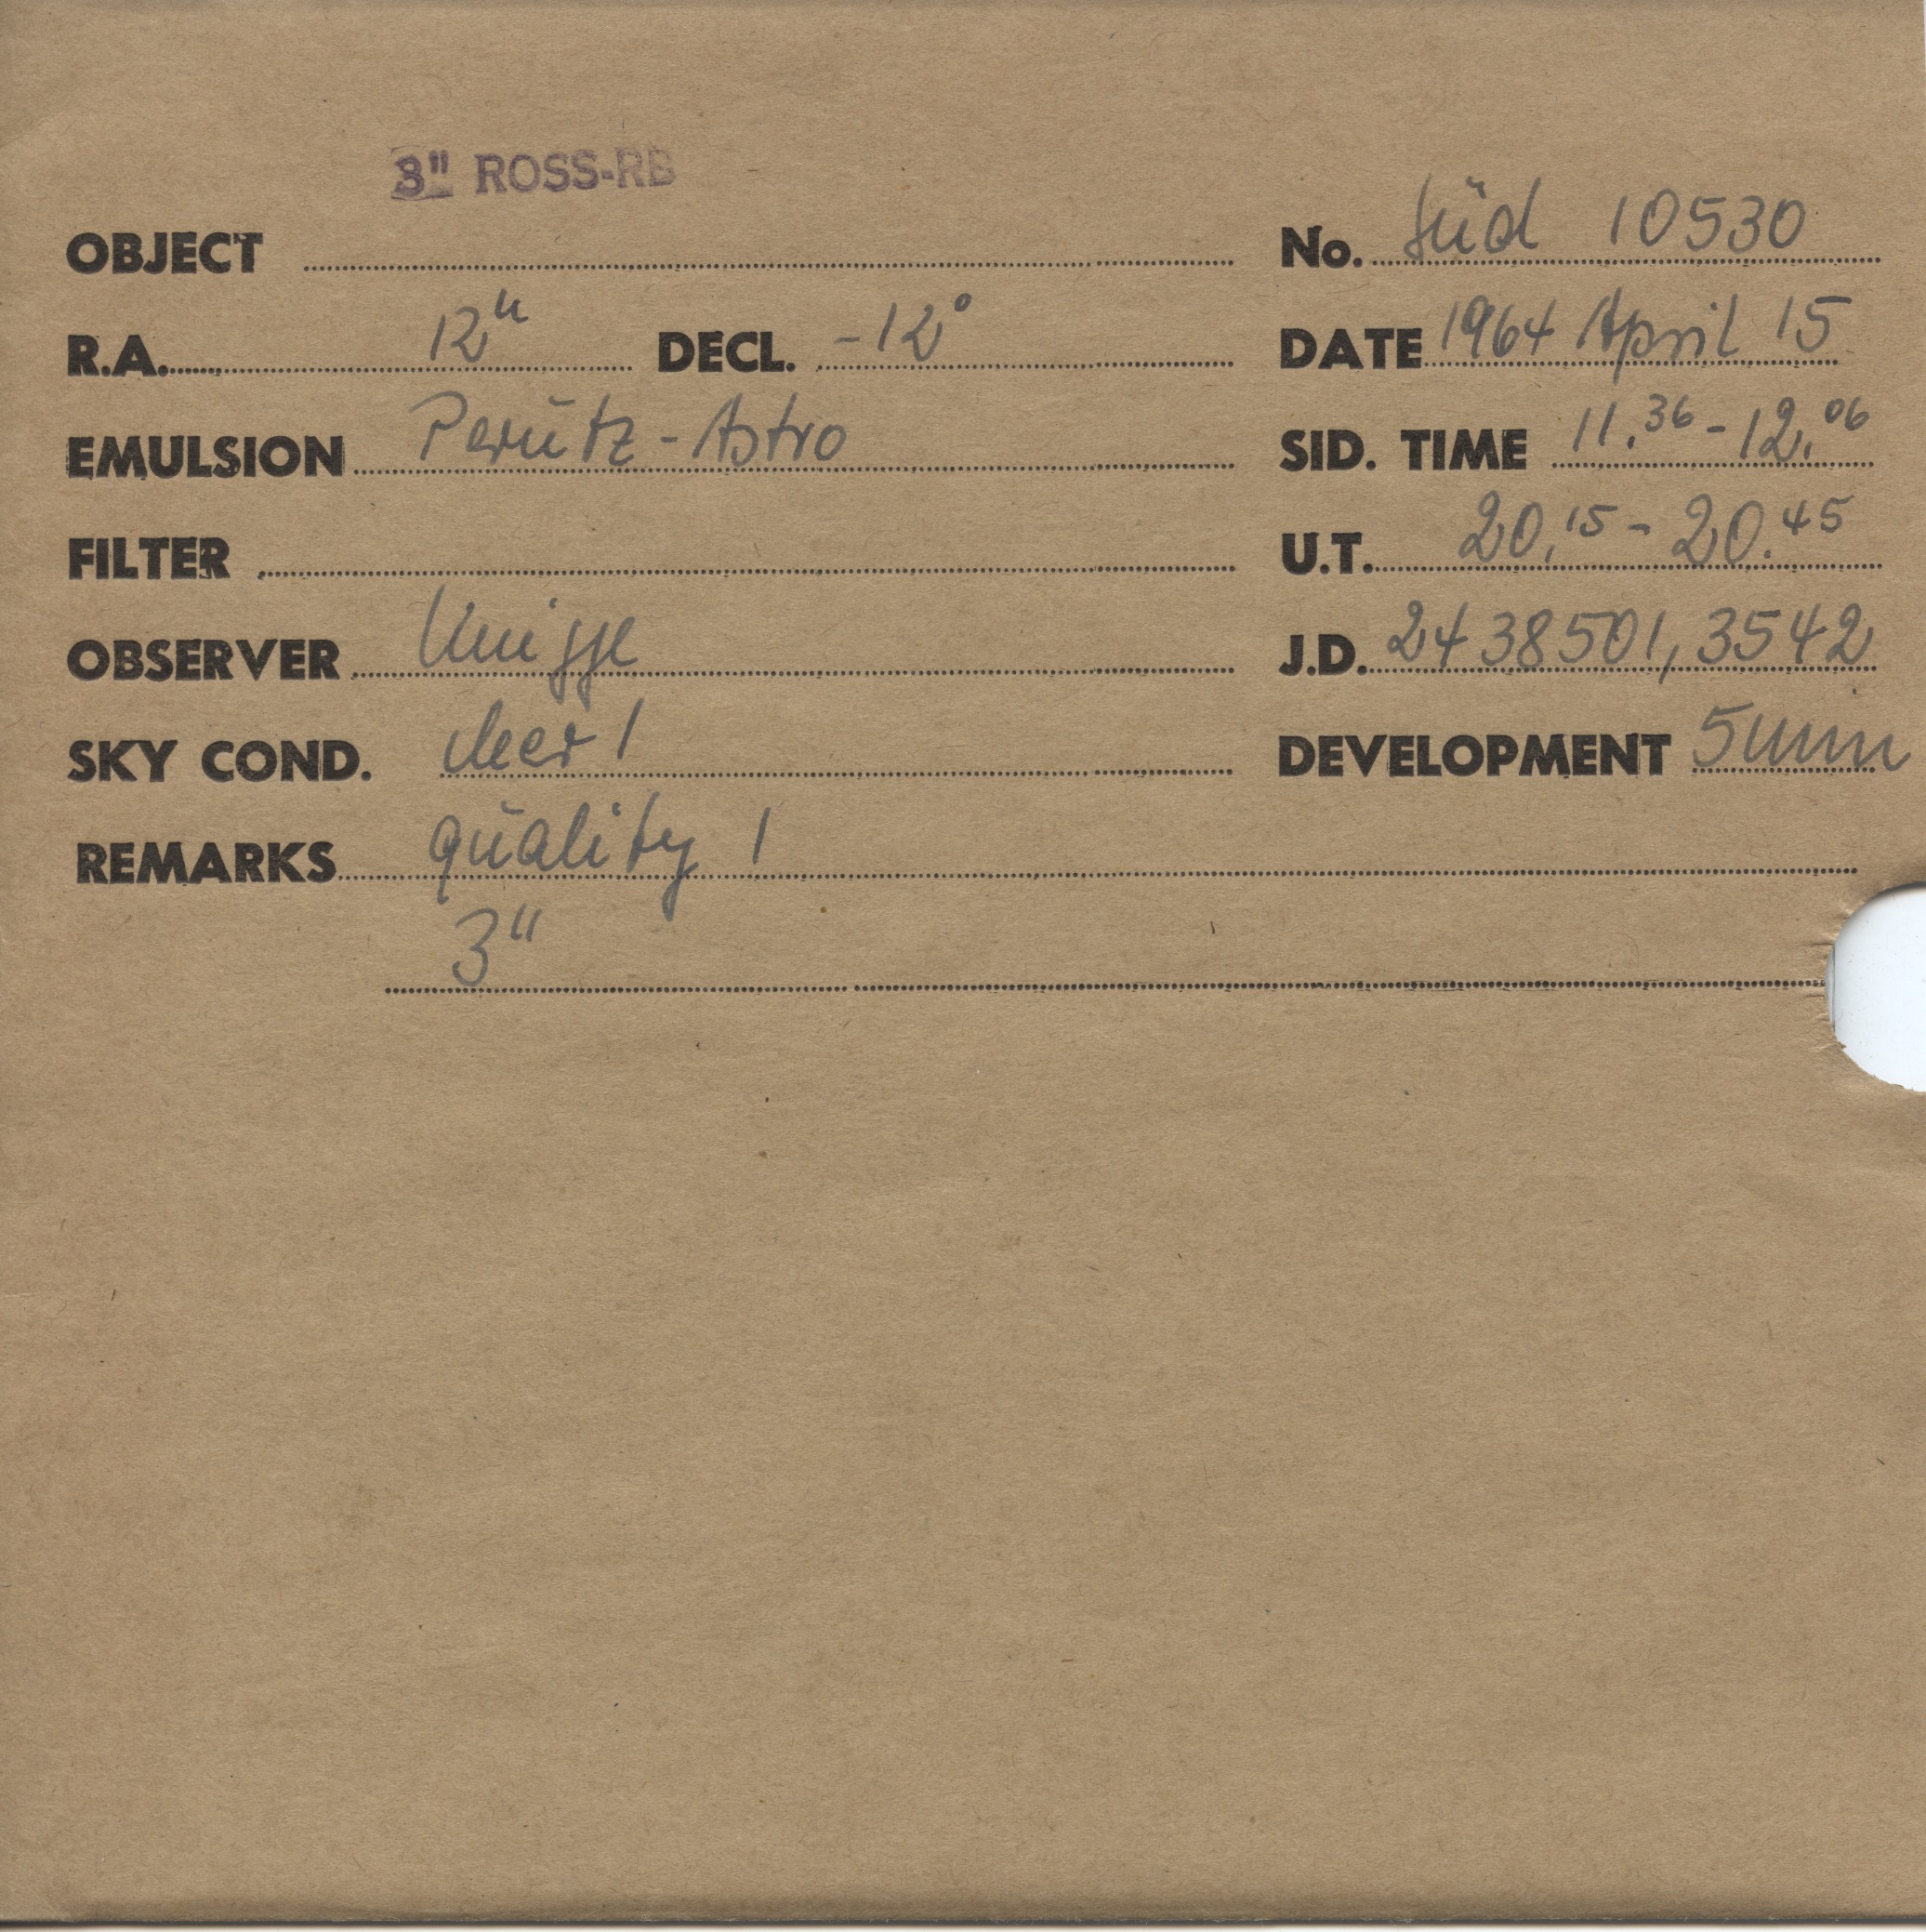 3" ROSS-RB
OBJECT No. Süd 10530
R.A. 12h DECL. -12° DATE 1964 April 15
EMULSION Perutz - Astro SID. TIME 11.36 - 12.06
FILTER U.T. 20.15 - 20.45
OBSERVER Knigge J.D. 2438501,3542
SKY COND. clear 1 DEVELOPMENT 5 min
REMARKS quality 1
3"